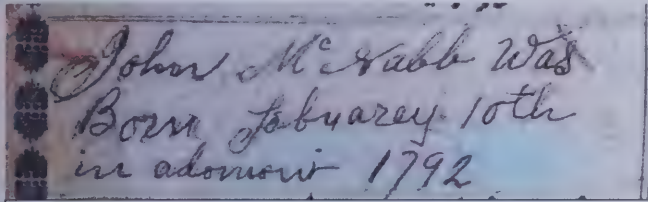 John McNabb Was
Born Febuarey 10th
in adomoni 1792